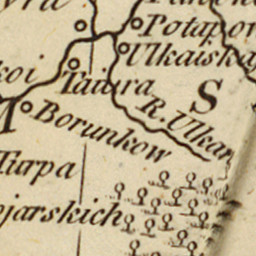 Potapov
Ulkatsk
koi
Taiura
S
R. Ulkan
Borunkow
Turpa
jarskich